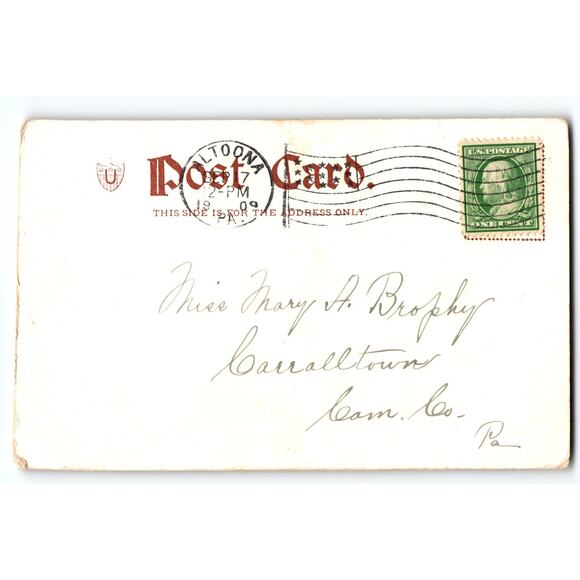 U
Post Card.
THIS SIDE IS FOR THE ADDRESS ONLY.
ALTOONA
SEP 17
2-PM
19 09
PA.
U.S. POSTAGE
ONE CENT
Miss Mary A. Brophy
Carralltown
Cam. Co.
Pa